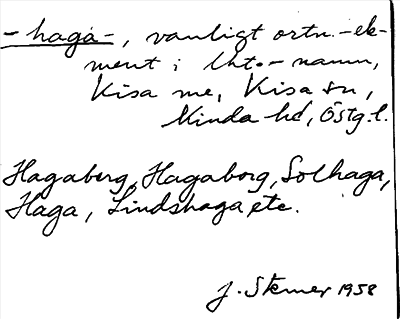 -haga-, vanligt ortn.-ek-
ment i lht.-namn,
Kisa me, Kisa sn,
Kinda hd, Östg.l.
Hagaberg, Hagaborg, Solhaga,
Haga, Lindshaga etc.
J. Stemer 1958